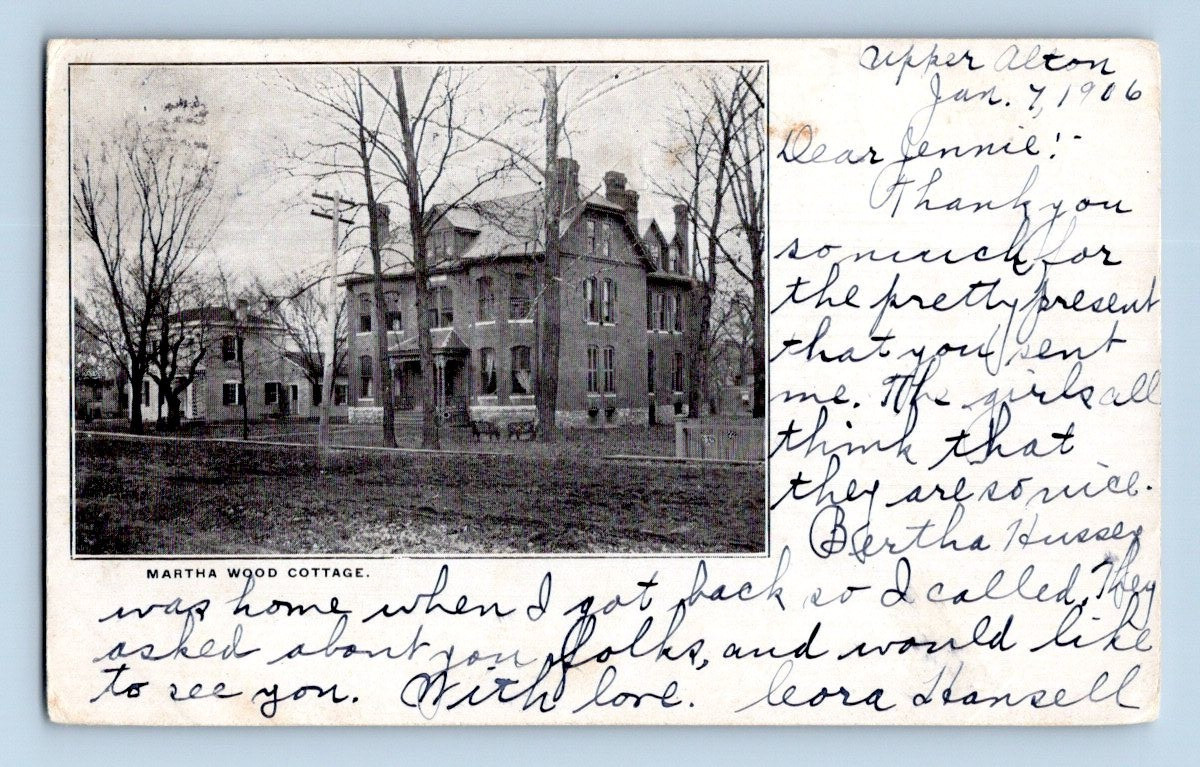 Upper Alton
Jan. 7, 1906
Dear Jennie:-
Thank you
so much for
the pretty present
that you sent
me. The girls all
think that
they are so nice.
Bertha Hussey
MARTHA WOOD COTTAGE.
was home when I got back so I called. They
asked about you folks, and would like
to see you. With love. Cora Hansell